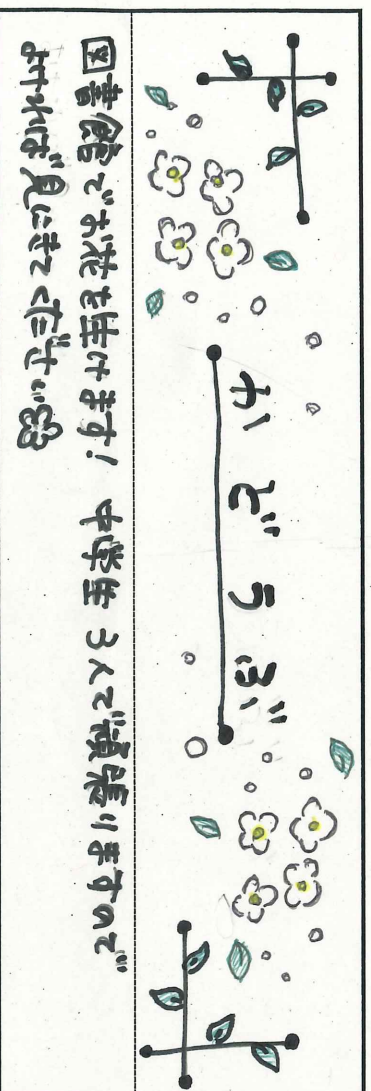 かどうぶ
図書館でお花を生けます! 中学生3人で頑張りますので
よければ見にきてください